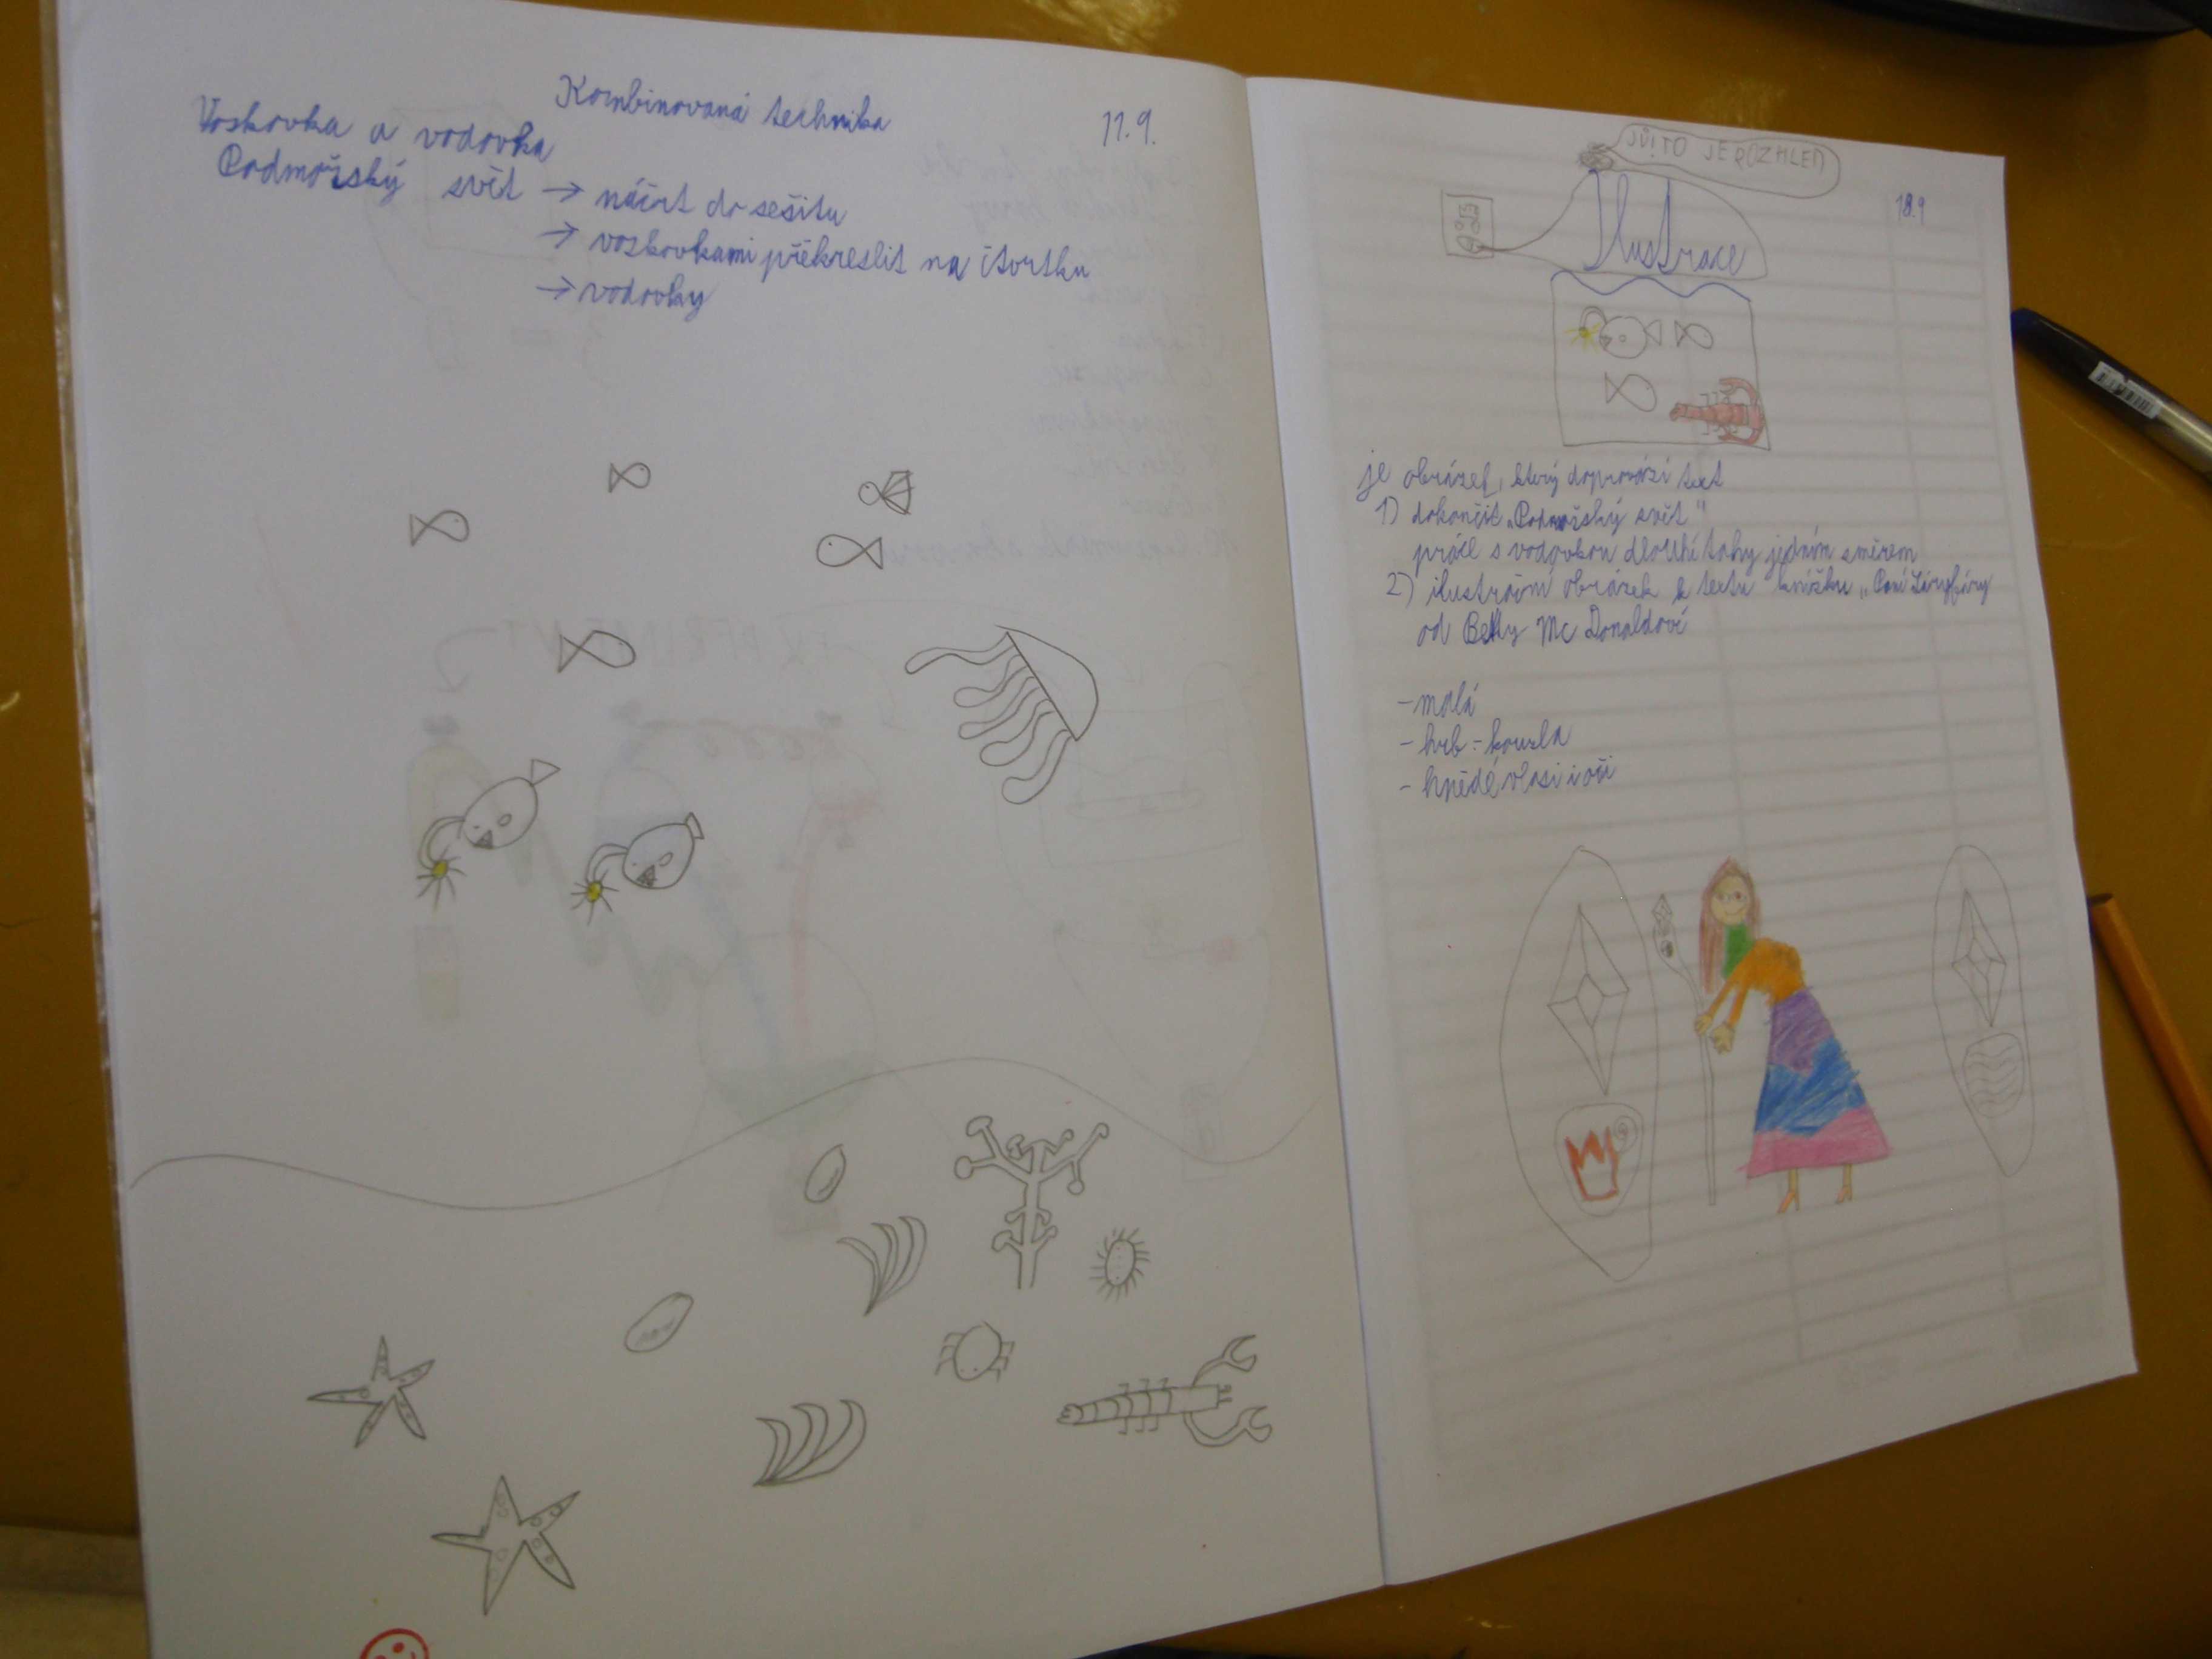 Kombinovaná technika
11.9.
Voskovka a vodovka
Podmořský svět → náčrt do sešitu
→ voskovkami překreslit na čtvrtku
→ vodovky
JŮ! TO JE ROZHLED
18.9
Ilustrace
je obrázek, který doprovází text
1) dokončit „Podmořský svět"
práce s vodovkou dlouhé tahy jedním směrem
2) ilustrační obrázek k textu knížku „Paní Láryfáry
od Betty Mc Donaldové
- malá
- hrb - kouzla
- hnědé vlasi i oči